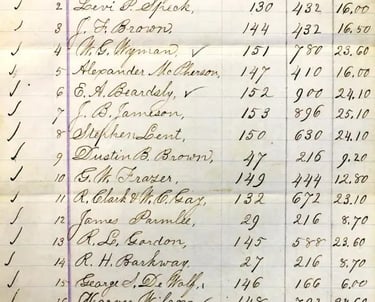 √ 2 Levi P. Speck, 130 432 16.00
√ 3 J. F. Brown, 144 432 16.50
√ 4 W. G. Wyman, ✓ 151 780 23.60
√ 5 Alexander McPherson, 147 410 16.00
√ 6 E. A. Beardsly, ✓ 152 900 24.10
√ 7 J. B. Jameson, 153 896 25.10
√ 8 Stephen Lent, 150 630 24.10
√ 9 Dustin B. Brown, 47 216 9.20
√ 10 G. W. Frazer, 149 444 12.80
√ 11 R. Clark & W. C. Gay, 132 672 23.10
√ 12 James Parmlee, 29 216 8.70
√ 13 R. L. Gordon, 145 588 23.60
√ 14 R. H. Barkway, 27 216 8.70
√ 15 George S. De Wolf, 146 166 6.00
16 148